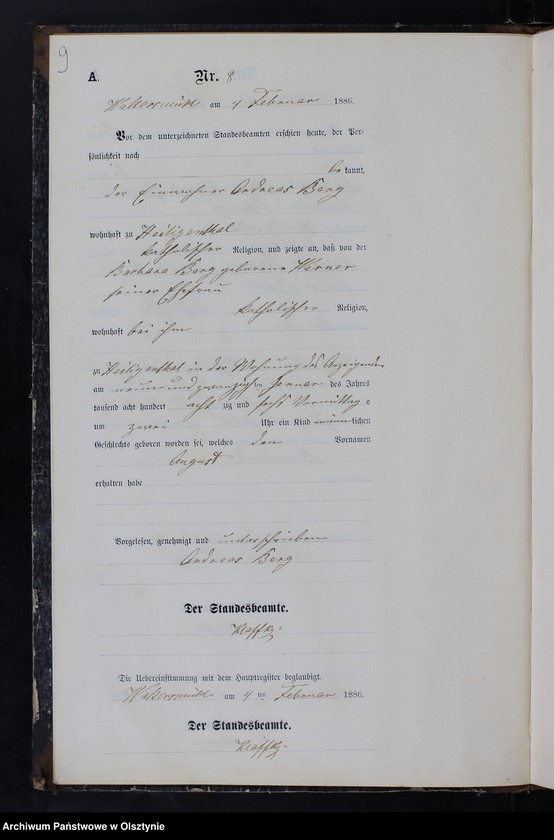 9
A.
Nr. 8
Waltersmühl am 4 Februar 1886.
Vor dem unterzeichneten Standesbeamten erschien heute, der Per-
sönlichkeit nach
be kannt,
der Einwohner Andreas Berg
wohnhaft zu Heiligenthal
katholischer Religion, und zeigte an, daß von der
Barbara Berg geborene Werner
seiner Ehefrau
katholischer Religion,
wohnhaft bei ihm
zu Heiligenthal in der Wohnung des Anzeigenden
am neun und zwanzigsten Januar des Jahres
tausend acht hundert acht zig und sechs Vormittag s
um zwei Uhr ein Kind männlichen
Geschlechts geboren worden sei, welches den Vornamen
August
erhalten habe
Vorgelesen, genehmigt und unterschrieben
Andreas Berg
Der Standesbeamte.
Klaffki
Die Uebereinstimmung mit dem Hauptregister beglaubigt.
Waltersmühl am 4 ten Februar 1886.
Der Standesbeamte.
Klaffki
Archiwum Państwowe w Olsztynie